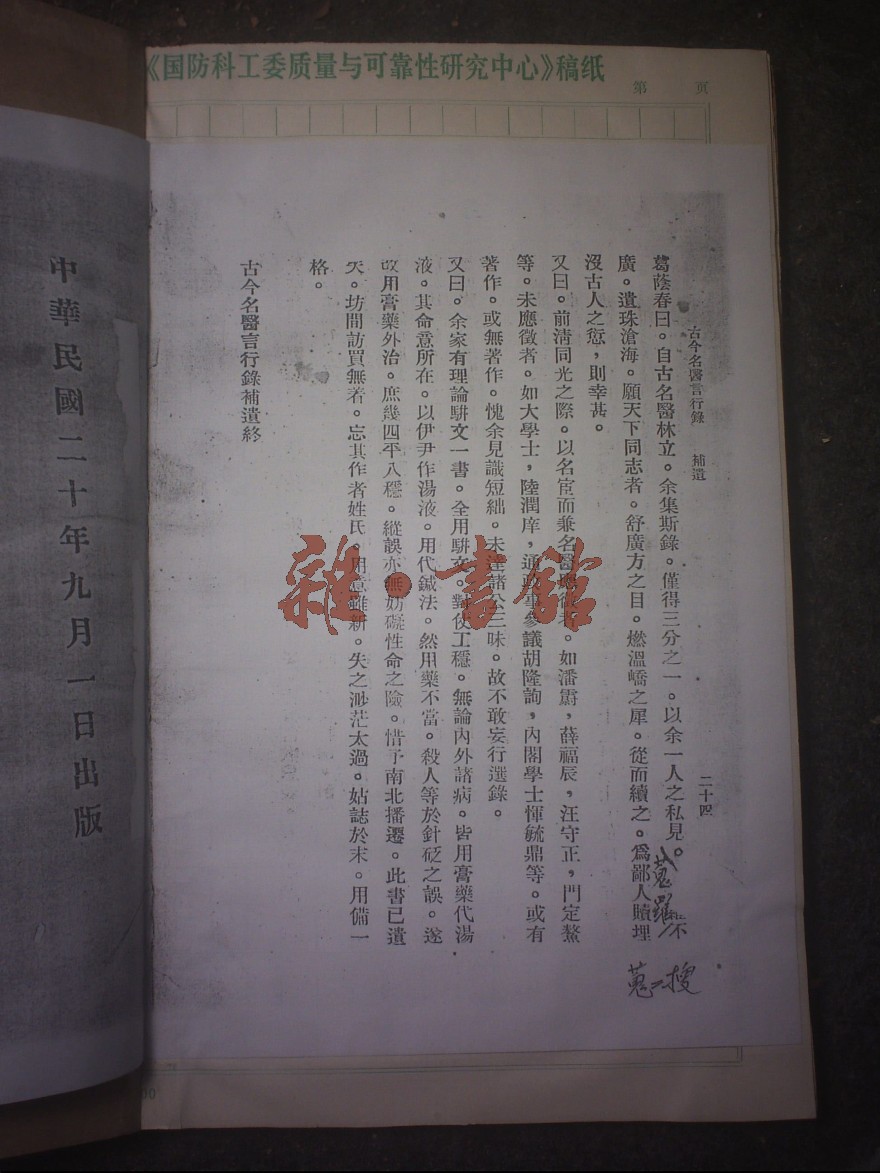 《国防科工委质量与可靠性研究中心》稿纸
第 页
古今名醫言行錄 補遺 二十四
葛蔭春曰。自古名醫林立。余集斯錄。僅得三分之一。以余一人之私見。蒐羅不
廣。遺珠滄海。願天下同志者。舒廣方之目。燃溫嶠之犀。從而續之。爲鄙人贖埋
沒古人之愆,則幸甚。
又曰。前清同光之際。以名宦而兼名醫應徵者。如潘霨,薛福辰,汪守正,門定鰲
等。未應徵者。如大學士,陸潤庠,通政參議胡隆詢,內閣學士惲毓鼎等。或有
著作。或無著作。愧余見識短絀。未達諸公三昧。故不敢妄行選錄。
又曰。余家有理論駢文一書。全用駢文。對仗工穩。無論內外諸病。皆用膏藥代湯
液。其命意所在。以伊尹作湯液。用代鍼法。然用藥不當。殺人等於針砭之誤。遂
改用膏藥外治。庶幾四平八穩。縱誤亦無妨礙性命之險。惜予南北播遷。此書已遺
失。坊間訪買無着。忘其作者姓氏。用意雖新。失之渺茫太過。姑誌於末。用備一
格。
古今名醫言行錄補遺終
蒐=搜
中華民國二十年九月一日出版
雜·書館